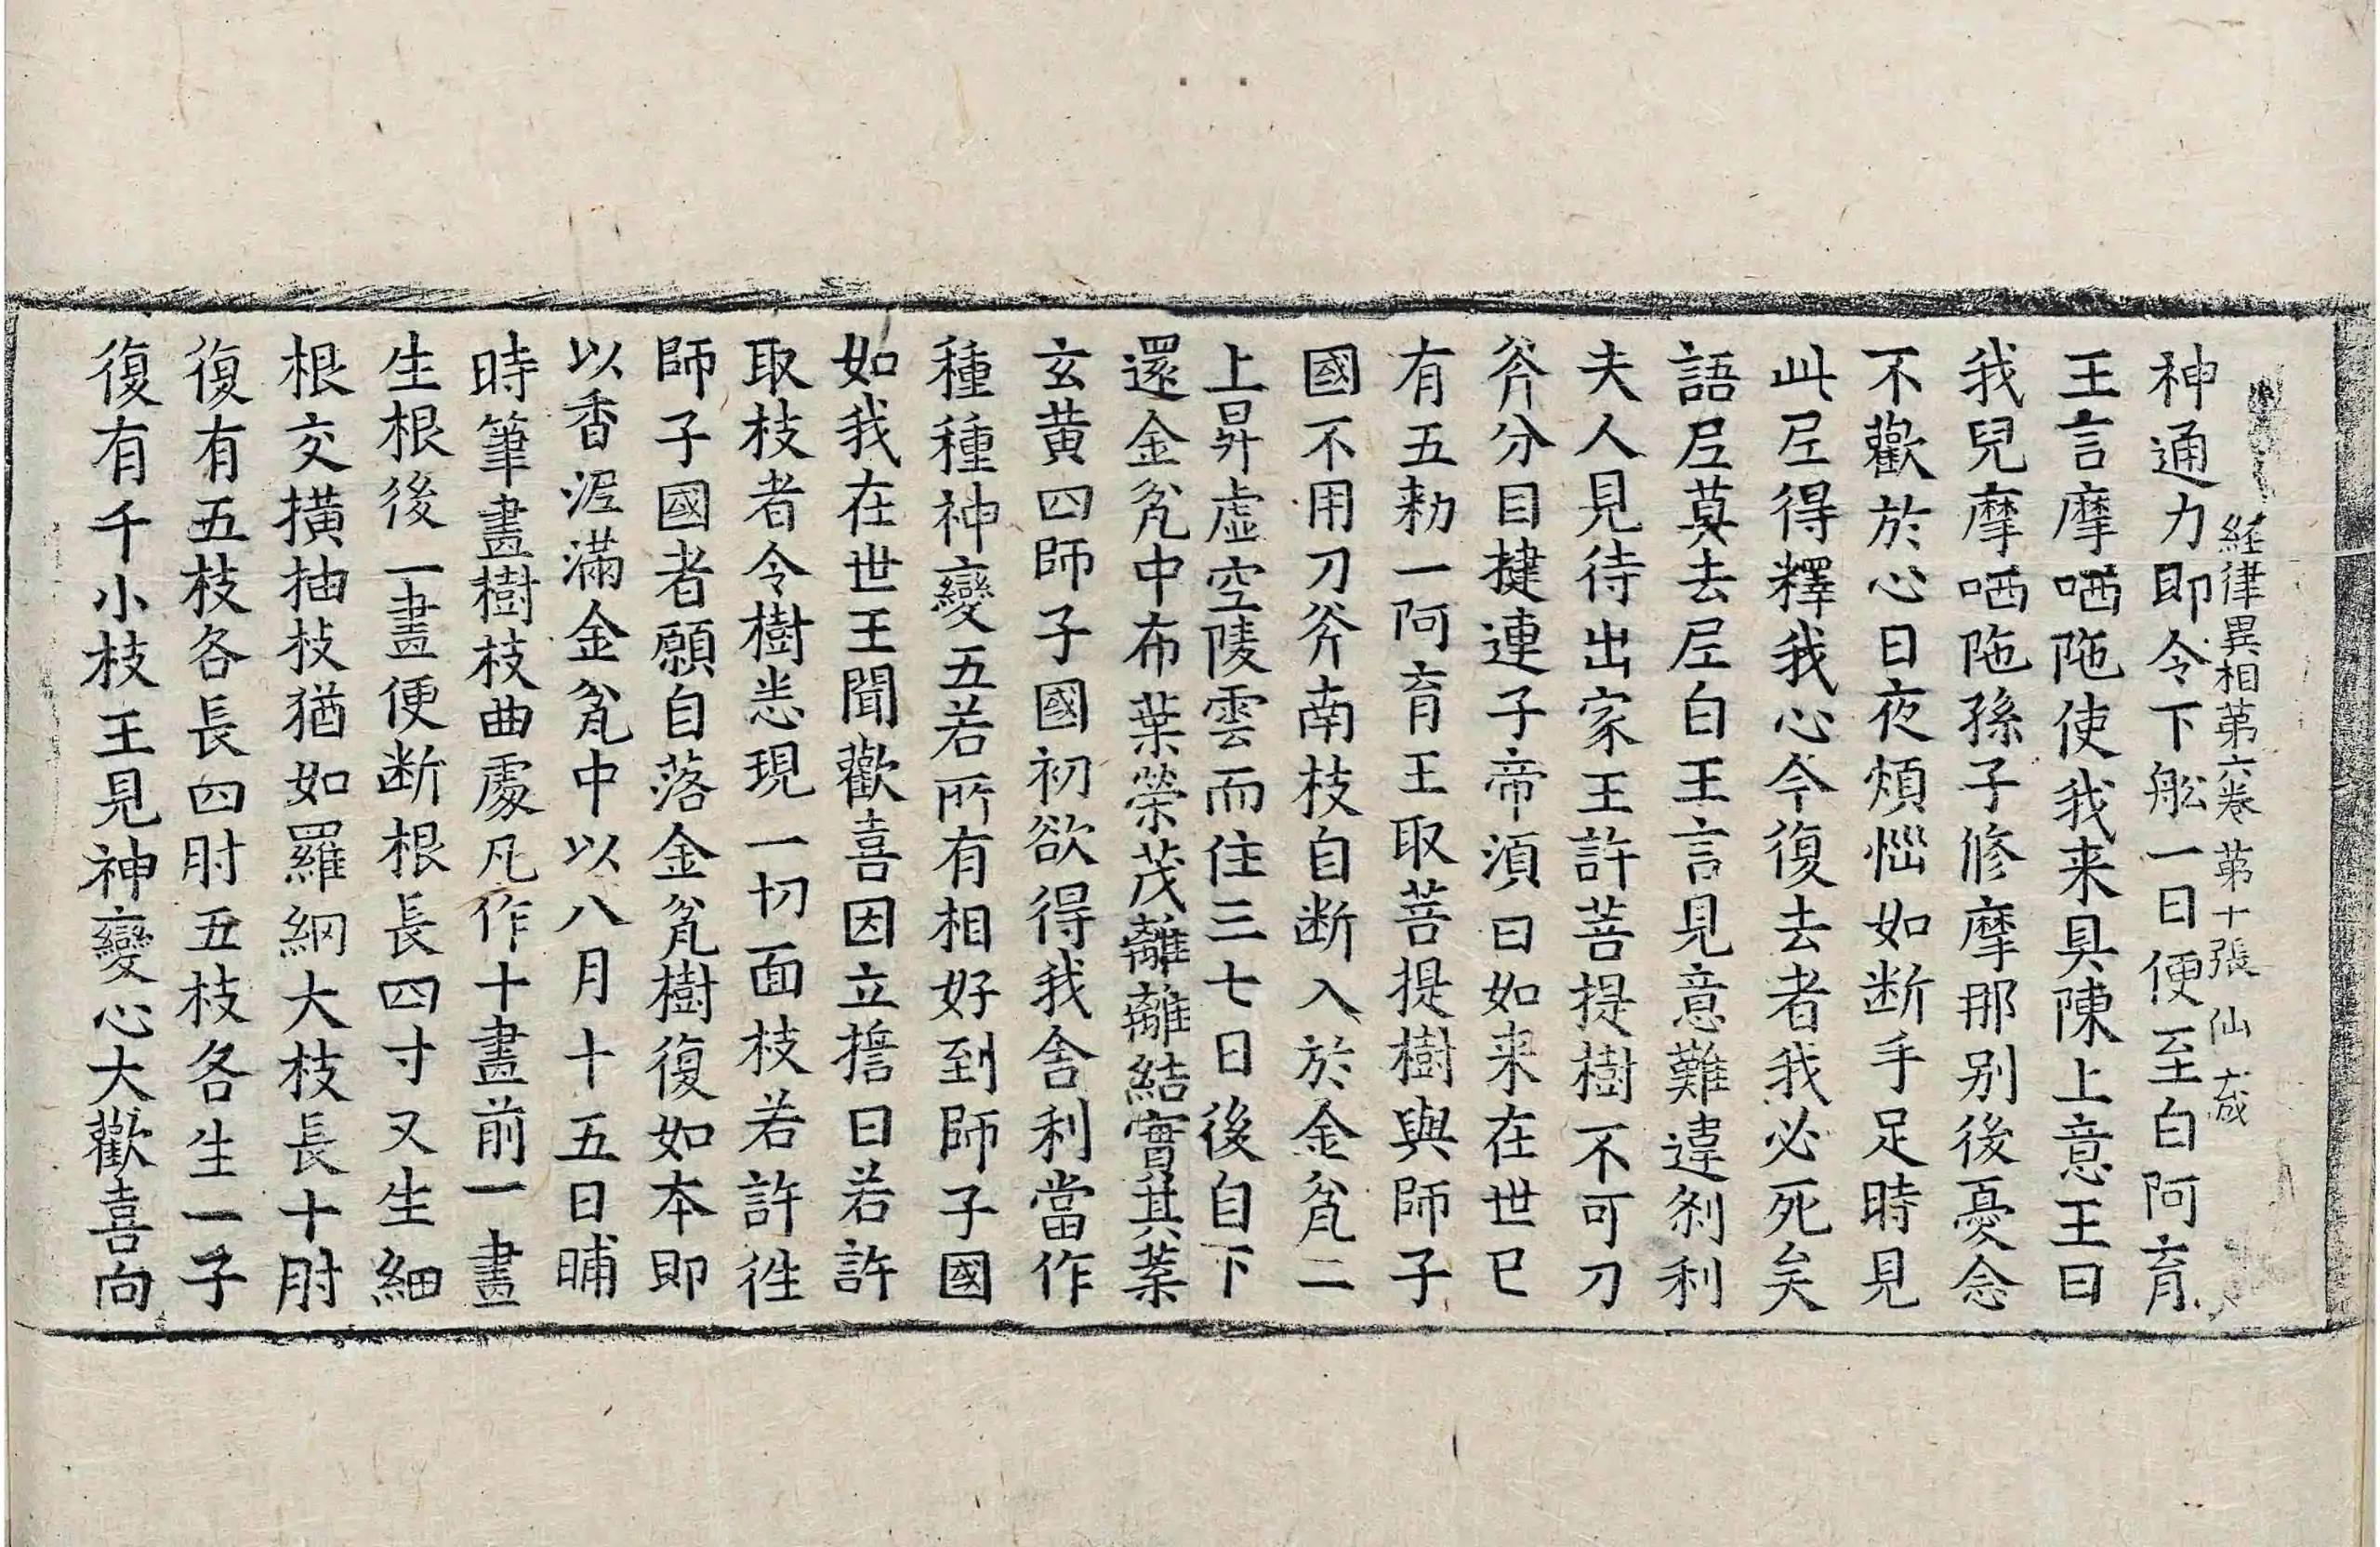 経律異相第六卷 第十張 仙 
神通力即令下舩一日便至白阿育
王言摩哂陁使我来具陳上意王曰
我兒摩哂陁孫子修摩那别後憂念
不歡於心日夜煩惱如断手足時見
此𡰱得釋我心今復去者我必死矣
語𡰱莫去𡰱白王言見意難違刹利
夫人見待出家王許菩提樹不可刀
斧分目揵連子帝湏曰如来在世已
有五勑一阿育王取菩提樹與師子
國不用刀斧南枝自断入於金瓮二
上昇虚空陵雲而住三七日後自下
還金瓮中布葉榮茂離離結實其葉
玄黄四師子國初欲得我舍利當作
種種神變五若所有相好到師子國
如我在世王聞歡喜因立誓曰若許
取枝者令樹悉現一切面枝若許徃
師子國者願自落金瓮樹復如本即
以香泥滿金瓮中以八月十五日晡
時筆畫樹枝曲處凡作十畫前一畫
生根後一畫便断根長四寸又生細
根交横抽枝猶如羅網大枝長十肘
復有五枝各長四肘五枝各生一子
復有千小枝王見神變心大歡喜向